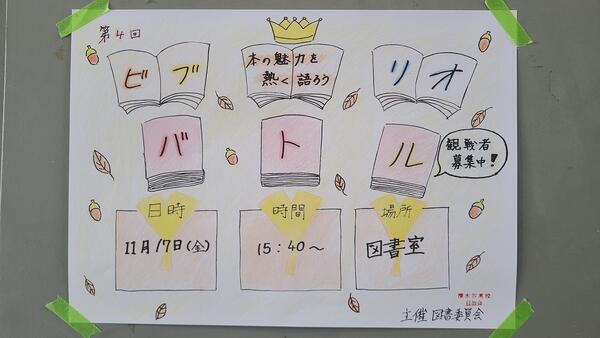 第4回
ビブ
本の魅力を
熱く語ろう
リオ
バ
ト
ル
観戦者
募集中!
日時
時間
場所
11月17日(金)
15:40〜
図書室
主催 図書委員会